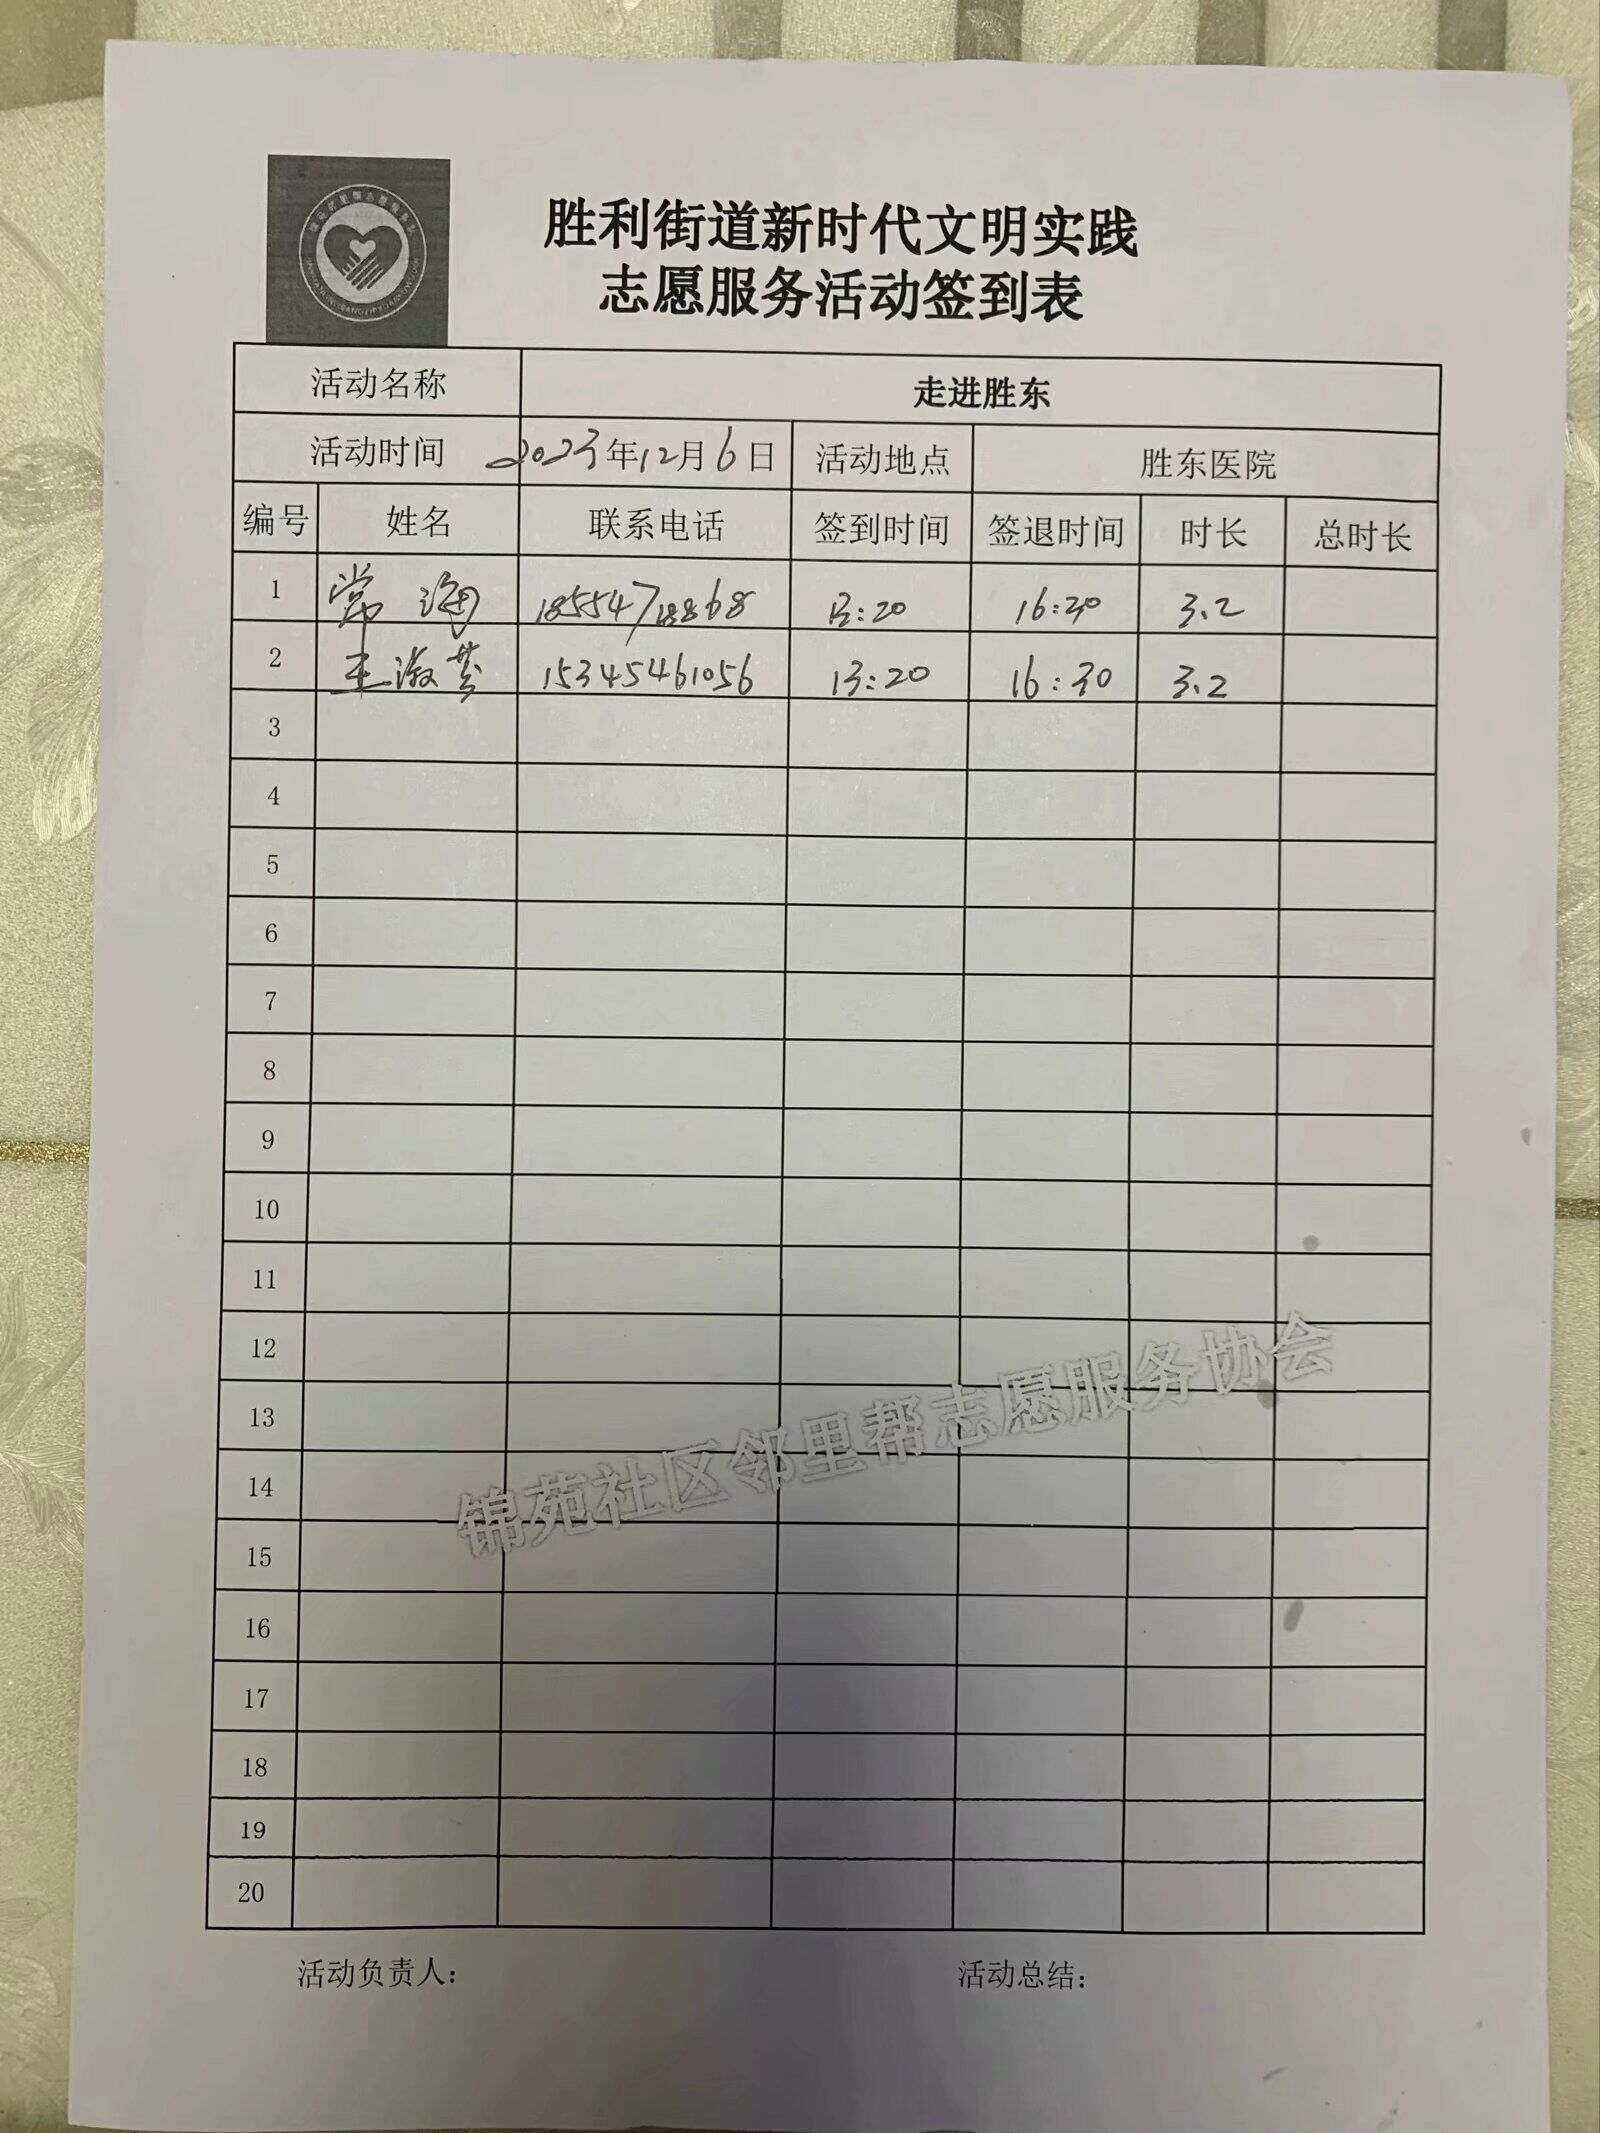 胜利街道新时代文明实践
志愿服务活动签到表
活动名称 走进胜东
活动时间 2023年12月6日 活动地点 胜东医院
编号 姓名 联系电话 签到时间 签退时间 时长 总时长
1 常海 18554718868 13:20 16:30 3.2
2 王淑芬 15345461056 13:20 16:30 3.2
3
4
5
6
7
8
9
10
11
12
13
14
15
16
17
18
19
20
锦苑社区邻里帮志愿服务协会
活动负责人： 活动总结：